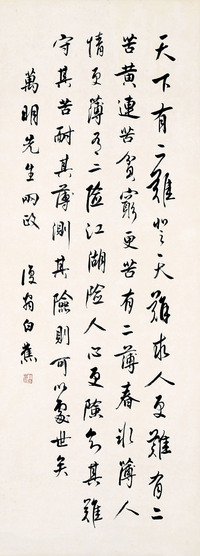 天下有二難登天難求人更難有二
苦黄連苦貧窮更苦有二薄春冰薄人
情更薄有二險江湖險人心更險知其難
守其苦耐其薄測其險則可以處世矣
萬明先生兩政
復翁白蕉